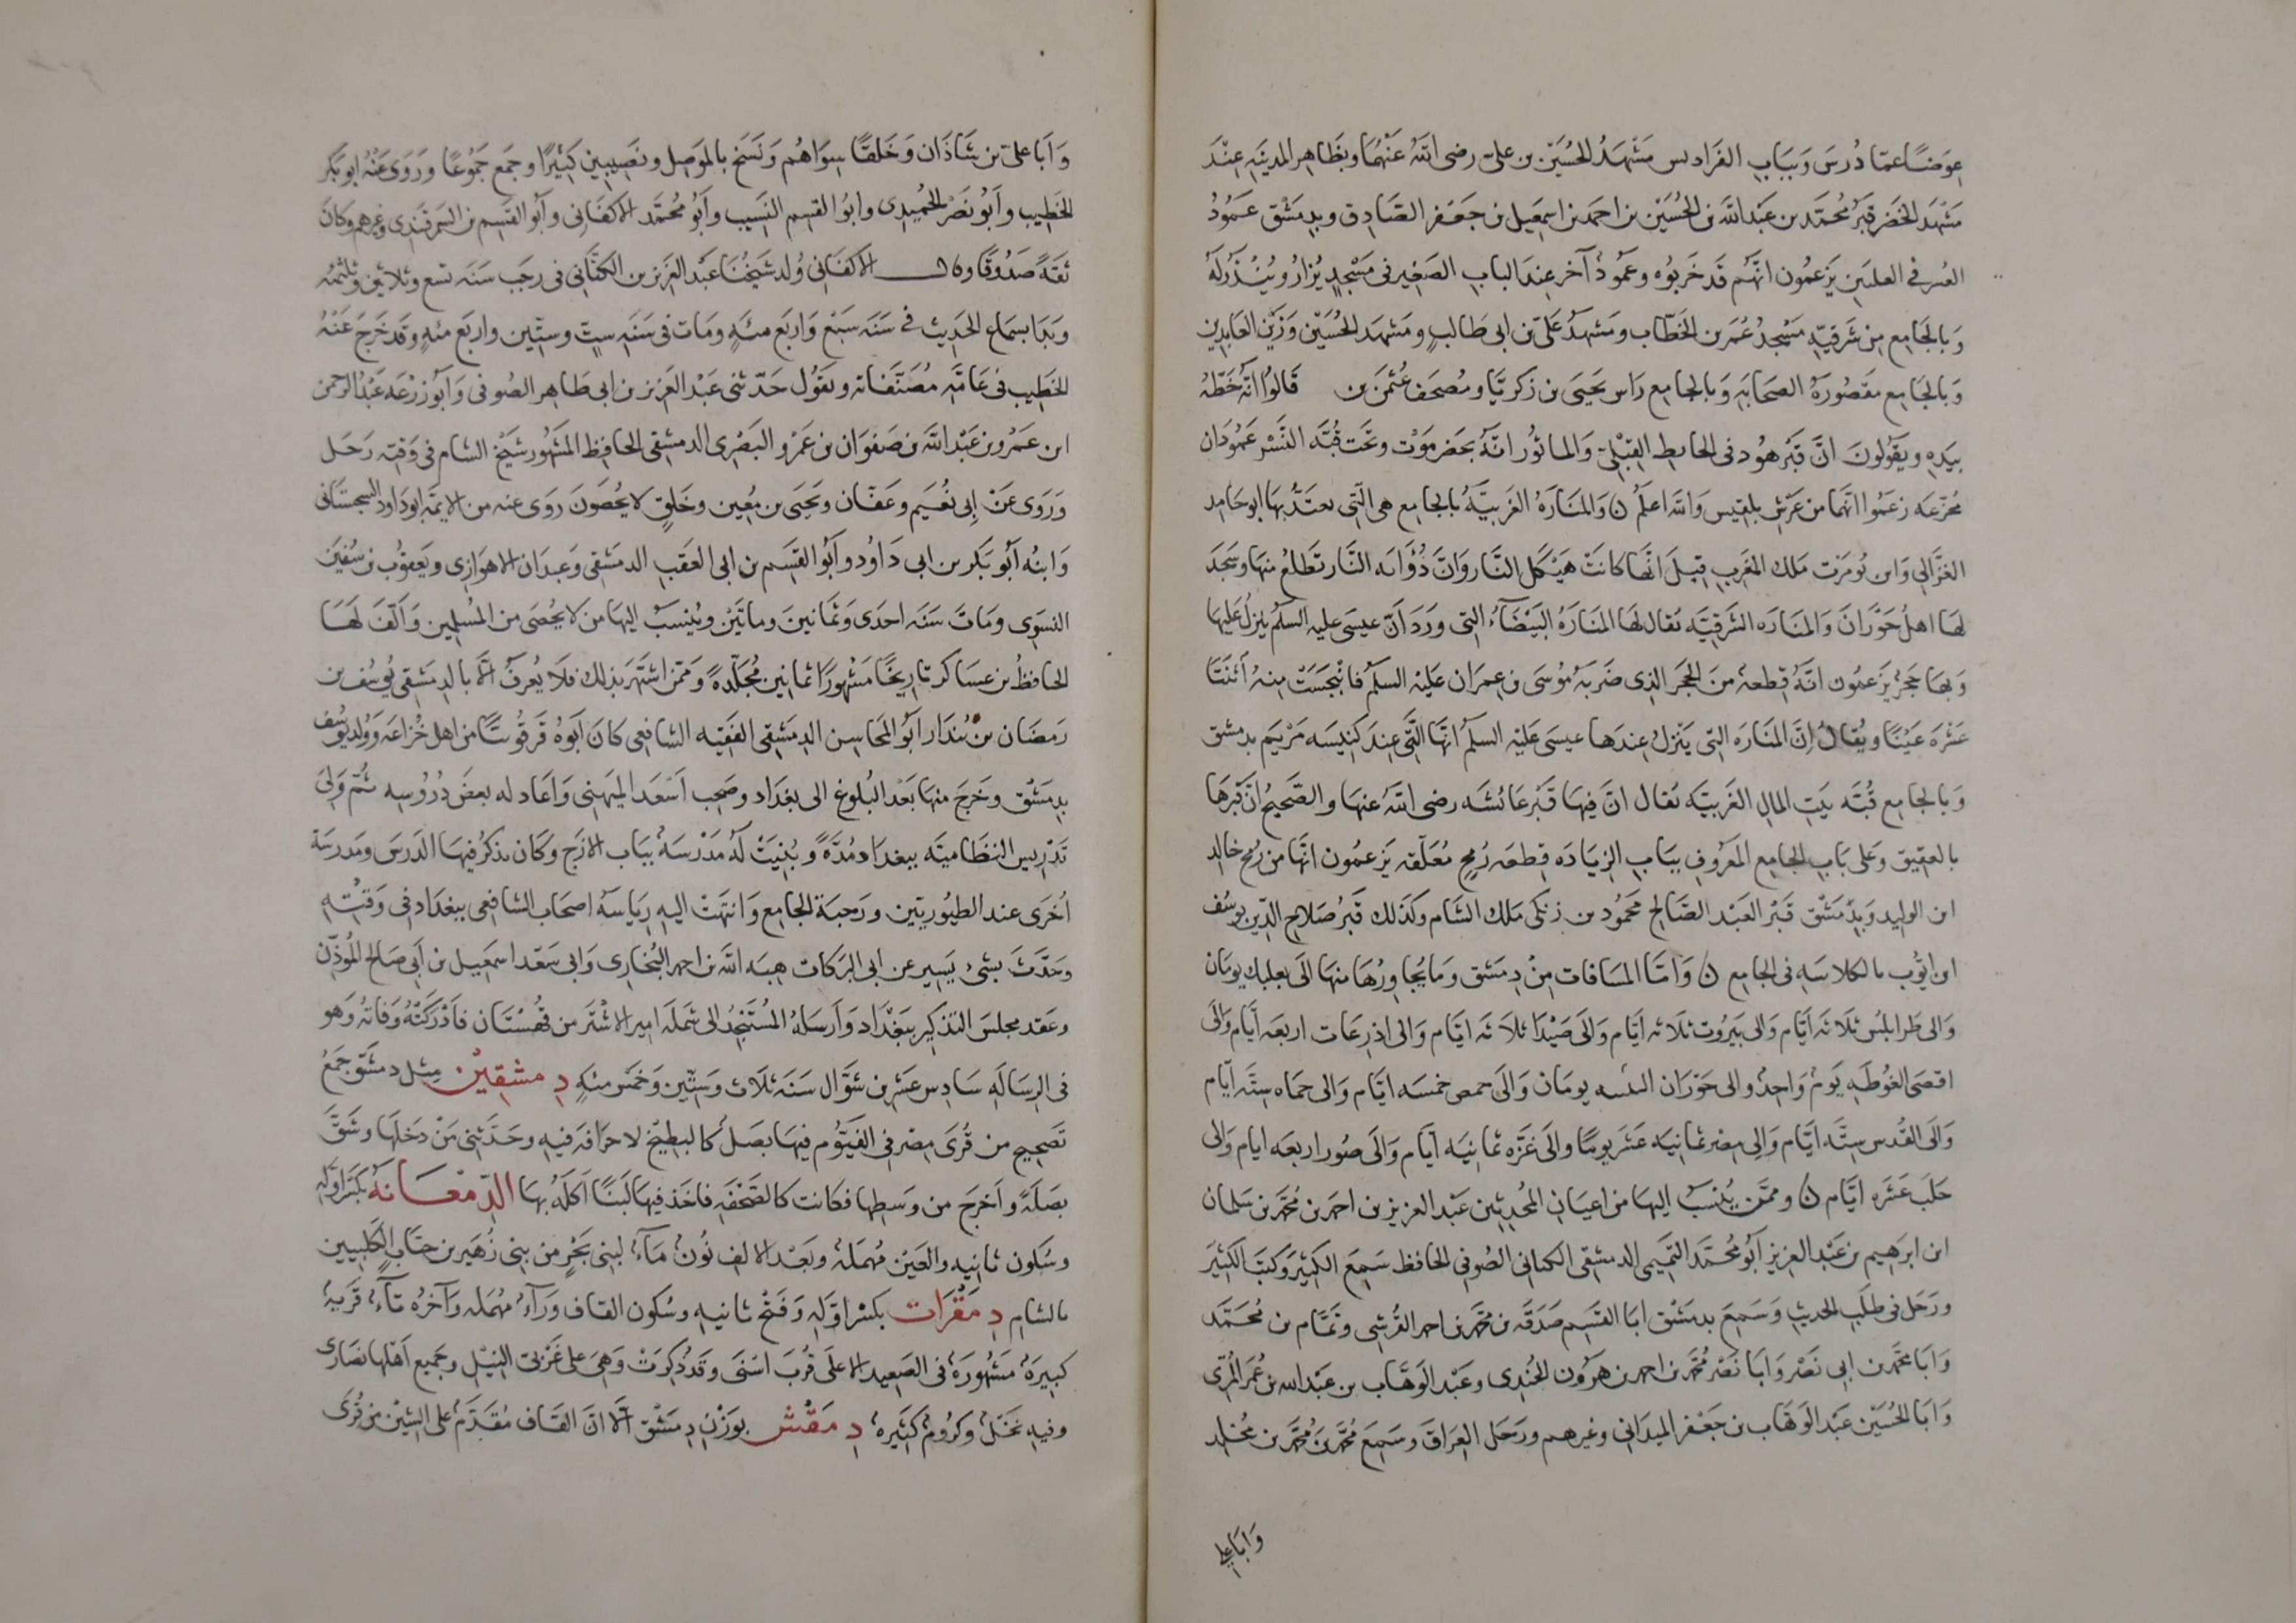 عِوَضًا عمّا دُرسَ وَبِبَابِ الفَرَادِيس مَشْهَدُ الحُسَيْن بن عليّ رضي اللّه عَنْهُمَا وبظَاهِر المدينَهِ عِنْدَ
مَشْهَدِ الخضَر قَبرُ مُحمَّد بن عَبْد اللّه بن الحُسَيْن بن احمد بن اسمعيل بن جَعْفر الصَّادِق وبدِمَشْق عَمُودُ
العُسر في العلبين يَزعمُون انّهُم قَد خَربُوه وعَمُودٌ آخر عِندَ البابِ الصَغِير في مَسْجدٍ يُزارُ ويُنْذَرُ لَهُ
وَبالجَامِع مِن شَرقيّهِ مَسْجدُ عُمَر بن الخَطّاب ومَشهَدُ عَليّ بن ابى طَالبٍ ومَشهَد الحُسَيْن وَزَيْن العَابدِين
وَبالجَامِع مَقصُورَةُ الصحَابَهِ وَبالجامِع رَاس يَحيَى بن زكَريَّا ومُصحَف عُثمٰنَ بن قَالُوا انّهُ خَطَّهُ
بيَدِهِ ويَقولُونَ انَّ قَبْرَ هُود في الحايطِ القِبْلِيّ وَالماثُور انّهُ بحَضْرمَوْت وتحَت قُبَّهِ النَّسْر عَمُودَان
مُجزّعَه زعَمُوا انَّهمَا من عَرْشِ بلقِيس وَاللّه اعلَمُ ن وَالمنَارَهُ الغَربيّهُ بالجامِع هي الّتي تعَبَّدُ بهَا ابوحَامِد
الغزَّالي وَابن تُومَرت مَلك المغربِ قيلَ انَّهَا كانَتْ هَيْكَل النّار وَانَّ ذُؤَابَه النَّار تطَلعُ منهَا وسَجَدَ
لهَا اهلُ حَوْرَانَ وَالمنَارَه الشَرقيَّهُ يقال لهَا المنَارَهُ البَيْضَآءُ التي وَرَدَ انّ عيسَى عليه السلَمُ ينزلُ عَليهَا
وَبهَا حَجَرٌ يَزعمُون انّهُ قِطعهٌ منَ الحَجَر الذِى ضَرَبَهُ مُوسَى بن عِمرَان عَليْه السلَمُ فانْبَجسَتْ مِنهُ اثْنَتَا
عَشْرَهَ عَيْنًا ويُقالُ إِنَّ المنَارَه التي يَنْزلُ عِندَها عيسَى عَليْهِ السلَمُ انّهَا الّتي عِندَ كَنِيسَه مَرْيَم بدمشق
وَبالجامِع قُبَّه بَيتِ المالِ الغَربيّه يُقال انَّ فِيهَا قَبْر عَائشَه رضي اللّهُ عنهَا والصَّحِيحُ انّ قَبْرهَا
بالعقِيق وَعَلى بَابِ الجامِع المعرُوفِ ببَابِ الزيَادَه قِطعَه رُمحٍ مُعَلّقه يَزعمُون انَّهَا من رُمح خالِد
ابن الوليد وَبِدِمَشْق قَبْر العَبْد الصَّالح محَمُود بن زنكى مَلك الشَام وكذَلك قَبرُ صَلاح الدِّين يوسُف
ابن ايّوب بالكلاسَهِ في الجامِع ن وَامَّا المسَافات مِنْ دِمَشق وَما يُجَاوِرُهَا منهَا الى بعلبك يومَان
وَالى طرابلس ثلاثَه ايّام وَالى بَيرُوت ثلَاثه ايَام وَالَى صَيْدَا ثلاثَه ايّام وَالى اذرعَات اربعَه ايّام وَالى
اقصَى الغُوطَهِ يَومٌ وَاحِدٌ والى حَوْرَان البثنيه يومَان وَالَى حمص خمسَه ايّام وَالى حمَاه ستّه ايّام
وَالَى القُدس ستّه ايّام وَالِى مِصْر ثمانيَه عَشَر يومًا والَى غَزّه ثمانيَه ايّام وَالَى صُور اربعَه ايام وَالى
حَلبَ عَشَره ايّام ن وممَّن يُنسَبُ اليهَا من اعيَان المُحدِثين عَبْد العزيز بن احمد بن مُحمّد بن سَلمان
ابن ابرهِيم بن عَبْد العزِيز ابُو مُحمّد التَّمِيمي الدمشقى الكتانى الصُوفي الحافظ سَمِعَ الكثِيرَ وَكتبَ الكثِيرَ
ورَحَل في طلَبِ الحَديثِ وَسَمِعَ بدمَشْق ابَا القَسِم صَدَقَه بن محَمّد بن احمد القُرشِي وتَمَّام بن مُحَمّد
وَابَا محمّد بن ابى نَصْر وَابَا نَصْر مُحمّد بن احمد بن هرُون الجُندِى وعَبْد الوَهَّاب بن عبْد الله بن عُمَر المُرّى
وَابَا الحُسَيْن عَبْد الوَهَاب بن جَعْفر الميدَانى وغيرهم ورَحَل العِرَاقَ وسَمِعَ مُحَمّد بن مُحَمّد بن مُخلِد
وَابَا علي
وَابَا عليّ بن شَاذَان وَخَلقًا سِوَاهُم وَنسَخ بالموَصِل ونَصِيبِين كَثِيرًا وجمَع جمُوعًا ورَوَى عَنْهُ ابو بَكر
الخطِيب وابُو نَصْر الحُمَيدِى وابوُ القسِم النَسِيب وأَبُو مُحمَّد الاكفَانِى وآبُو القسِم بن السمَرقَندِى وغيرهم وَكانَ
ثقَةً صَدُوقًا وقال الاكفَانى وُلد شَيْخُنَا عَبْد العَزيز بن الكَتَّانِى في رجَب سَنَه تسع وثلاثين وثلثمئه
وَبَدَا بسمَاع الحَدِيث في سَنَه سَبْع وَاربَع مئهٍ ومَات في سَنَهِ ستٍّ وستّين واربَع مئهٍ وقَد خَرجَ عَنْهُ
الخَطِيب في عَامَّهِ مُصَنّفاته ويقوُل حَدّثنى عَبْد العَزيز بن ابى طَاهِر الصُوفى وَآبُو زُرْعَه عَبْدُ الرحمن
ابن عَمْرو بن عَبْد اللّه بن صَفوَان بن عَمْرو البَصْرى الدمشقى الحافِظ المشهُور شَيْخ الشام في وَقتِه رَحَل
وَرَوَى عَنْ إِبى نُعَيم وعَفّان ويَحيَى بن مُعِين وخَلقٍ لا يُحصَونَ رَوى عنه من الايمَّه ابو دَاود السجستانى
وَابنُه آبُو بَكر بن ابى دَاوُد وابوُ القسَم بن ابى العَقبِ الدمَشقى وَعبدَان الاهوَازِى ويَعقوُب بن سُفيَن
النسَوِى ومَاتَ سَنَه احدَى وَثمانينَ وماتَيْن ويُنسَبُ اليهَا من لا يُحصَى من المُسلِمين وَآلّفَ لهَا
الحافظُ بن عسَاكر تارِيخًا مَشهُورًا ثمانين مُجلّدةً وَممّن اشتَهر بذلك فلَا يُعرَفُ الّا بالدِمَشقى يُوسُف بن
رمَضَان بن بُندَار ابُو المحَاسِن الدِمَشقِى الفَقِيه الشافعى كَانَ ابَوُهُ قَرقُوبيًّا من اهل خُزاعَه وَوُلد يوُسُف
بدِمَشْق وخَرجَ منهَا بَعْد البُلوغ الى بغدَاد وصَحِب اَسْعَد المِيهَنى وَاعَاد له بعضَ دُرُوسِه ثمّ وَلِىَ
تَدْرِيس النظَاميَّه ببغدَاد مُدَّهً وبُنِيَتْ لَهُ مَدْرسَهٌ ببَاب الازَج وكَان يذكرُ فيهَا الدَرسَ ومَدرسَة
اُخرَى عند الطيُوريِّين ورَحبَة الجامِع وَانتهَتْ اليهِ رِيَاسَهُ اصحَاب الشافِعى ببغدَاد في وَقتِهِ
وحَدَّثَ بشَئ يَسِيرٍ عن ابى البَركَات هِبَه اللّه بن احمد البُخارِى وَابى سَعْد اسمَعِيل بن ابِى صَالح المُؤذّن
وعَقد مجلسَ التذكِير ببَغْدَاد وَارسَلهُ المُستَنجُد الى شَملَه امِير الاشْتَر من قُهُسْتَان فادْرَكتْهُ وَفَاتهُ وَهو
في الرِسَالَهِ سَادِس عَشر من شَوّال سَنَه ثلاث وسَتّين وَخمسَ مئهٍ دِمشقِيْن مِثل دمشَق جَمْعُ
تَصحِيح من قُرَى مِصْر في الفيّوم فيهَا بَصَلٌ كالبطِيْخ لا حرَافَه فيهِ وحَدّثنِى مَنْ دَخلَهَا وشَقّ
بصَلَةً وأَخرَجَ من وسَطِها فكانت كالصّحْفَهِ فاخَذ فيهَا لَبَنًا اكلَهُ بهَا الدّمْعَانَهُ بكَسْر اوّلهِ
وسُكون ثانِيهِ والعَيْن مُهمَلهٌ وبَعْد الالِف نُونٌ مَآءٌ لبَنِى بَحْرٍ من بنِى زُهَير بن جنَابٍ الكلبِيين
بالشَامِ دِمَقْرَات بكَسْر اوّلهِ وَفَتْح ثانيهِ وسُكون القاف ورَآءٌ مُهمَله وَآخرُه تآءٌ قَريَهٌ
كبِيرَهٌ مَشهُورَهٌ في الصَعِيد الاعلَى قُربَ اسْنَى وقَدْ ذُكِرَتْ وَهىَ على غَرْبىّ النِيْلِ وجَمِيع اَهْلهَا نصَارَى
وفيهِ نخلٌ وكرُومٌ كثِيرهٌ دِمَقْش بوزْنِ دِمَشْق الّا انّ القَاف مُقَدّمَهٌ على الشِيْن من قُرَى